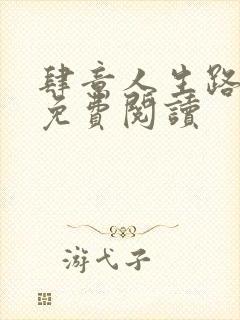 肆意人生路
免費閱讀
游弋子